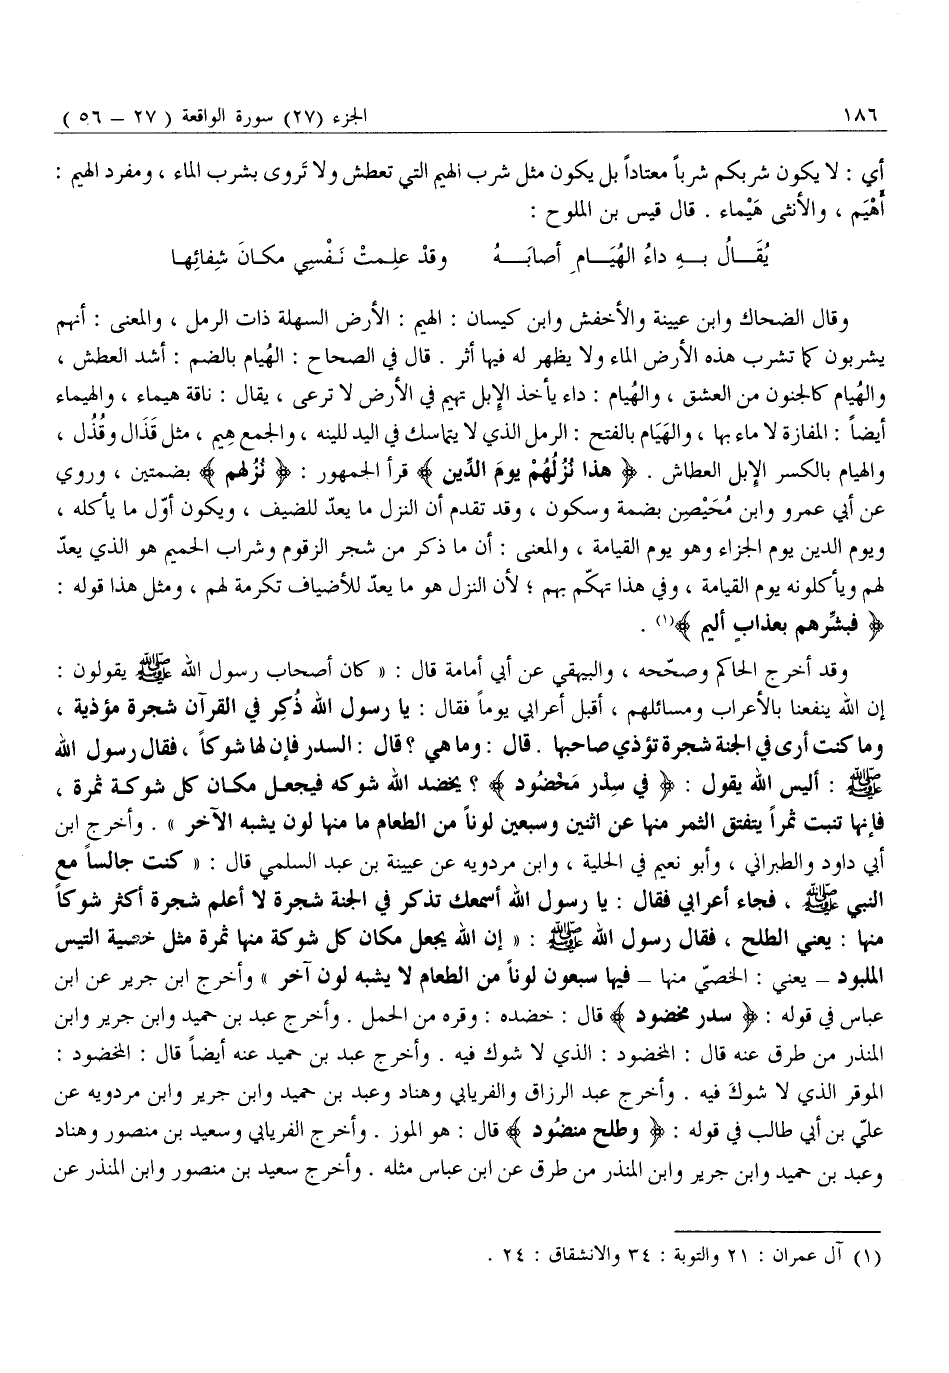 ١٨٦ الجزء (٢٧) سورة الواقعة ( ٢٧ – ٥٦ )
أي : لا يكون شربكم شرباً معتاداً بل يكون مثل شرب الهيم التي تعطش ولا تَروى بشرب الماء ، ومفرد الهيم :
أَهْيَم ، والأنثى هَيْماء . قال قيس بن الملوح :
يُقَـــالُ بـــهِ داءُ الهُيَـــامِ أصابَـــهُ وقدْ علِمتْ نَـفْسِي مكـانَ شِفائِهـا
وقال الضحاك وابن عيينة والأخفش وابن كيسان : الهيم : الأرض السهلة ذات الرمل ، والمعنى : أنهم
يشربون كما تشرب هذه الأرض الماء ولا يظهر له فيها أثر . قال في الصحاح : الهُيام بالضم : أشد العطش ،
والهُيام كالجنون من العشق ، والهُيام : داء يأخذ الإبل تهيم في الأرض لا ترعى ، يقال : ناقة هيماء ، والهيماء
أيضاً : المفازة لا ماء بها ، والهَيَام بالفتح : الرمل الذي لا يتماسك في اليد للينه ، والجمع هِيم ، مثل قَذَال وقُذُل ،
والهيام بالكسر الإبل العطاش . ﴿ هذا نُزُلُهُمْ يومَ الدِّين ﴾ قرأ الجمهور : ﴿ نُزُلهم ﴾ بضمتين ، وروي
عن أبي عمرو وابن مُحَيْصِن بضمة وسكون ، وقد تقدم أن النزل ما يعدّ للضيف ، ويكون أوّل ما يأكله ،
ويوم الدين يوم الجزاء وهو يوم القيامة ، والمعنى : أن ما ذكر من شجر الزقوم وشراب الحميم هو الذي يعدّ
لهم ويأكلونه يوم القيامة ، وفي هذا تهكّم بهم ؛ لأن النزل هو ما يعدّ للأضياف تكرمة لهم ، ومثل هذا قوله :
﴿ فبشِّرهم بعذابٍ أليم ﴾(١) .
وقد أخرج الحاكم وصحّحه ، والبيهقي عن أبي أمامة قال : « كان أصحاب رسول الله ﷺ يقولون :
إن الله ينفعنا بالأعراب ومسائلهم ، أقبل أعرابي يوماً فقال : يا رسول الله ذُكِر في القرآن شجرة مؤذية ،
وما كنت أرى في الجنة شجرة تؤذي صاحبها . قال : وما هي ؟ قال : السدر فإن لها شوكاً ، فقال رسول الله
ﷺ : أليس الله يقول : ﴿ في سِدْر مَخْضُود ﴾ ؟ يخضد الله شوكه فيجعـل مكـان كل شوكـة ثمرة ،
فإنها تنبت ثمراً يتفتق الثمر منها عن اثنين وسبعين لوناً من الطعام ما منها لون يشبه الآخر » . وأخرج ابن
أبي داود والطبراني ، وأبو نعيم في الحلية ، وابن مردويه عن عيينة بن عبد السلمي قال : « كنت جالساً مع
النبي ﷺ ، فجاء أعرابي فقال : يا رسول الله أسمعك تذكر في الجنة شجرة لا أعلم شجرة أكثر شوكاً
منها : يعني الطلح ، فقال رسول الله ﷺ : « إن الله يجعل مكان كل شوكة منها ثمرة مثل خصية التيس
الملبود – يعني : الخصيّ منها – فيها سبعون لوناً من الطعام لا يشبه لون آخر » وأخرج ابن جرير عن ابن
عباس في قوله : ﴿ سدر مخضود ﴾ قال : خضده : وقره من الحمل . وأخرج عبد بن حميد وابن جرير وابن
المنذر من طرق عنه قال : المخضود : الذي لا شوك فيه . وأخرج عبد بن حميد عنه أيضاً قال : المخضود :
الموقر الذي لا شوكَ فيه . وأخرج عبد الرزاق والفريابي وهناد وعبد بن حميد وابن جرير وابن مردويه عن
عليّ بن أبي طالب في قوله : ﴿ وطلح منضُود ﴾ قال : هو الموز . وأخرج الفريابي وسعيد بن منصور وهناد
وعبد بن حميد وابن جرير وابن المنذر من طرق عن ابن عباس مثله . وأخرج سعيد بن منصور وابن المنذر عن
(١) آل عمران : ٢١ والتوبة : ٣٤ والانشقاق : ٢٤ .